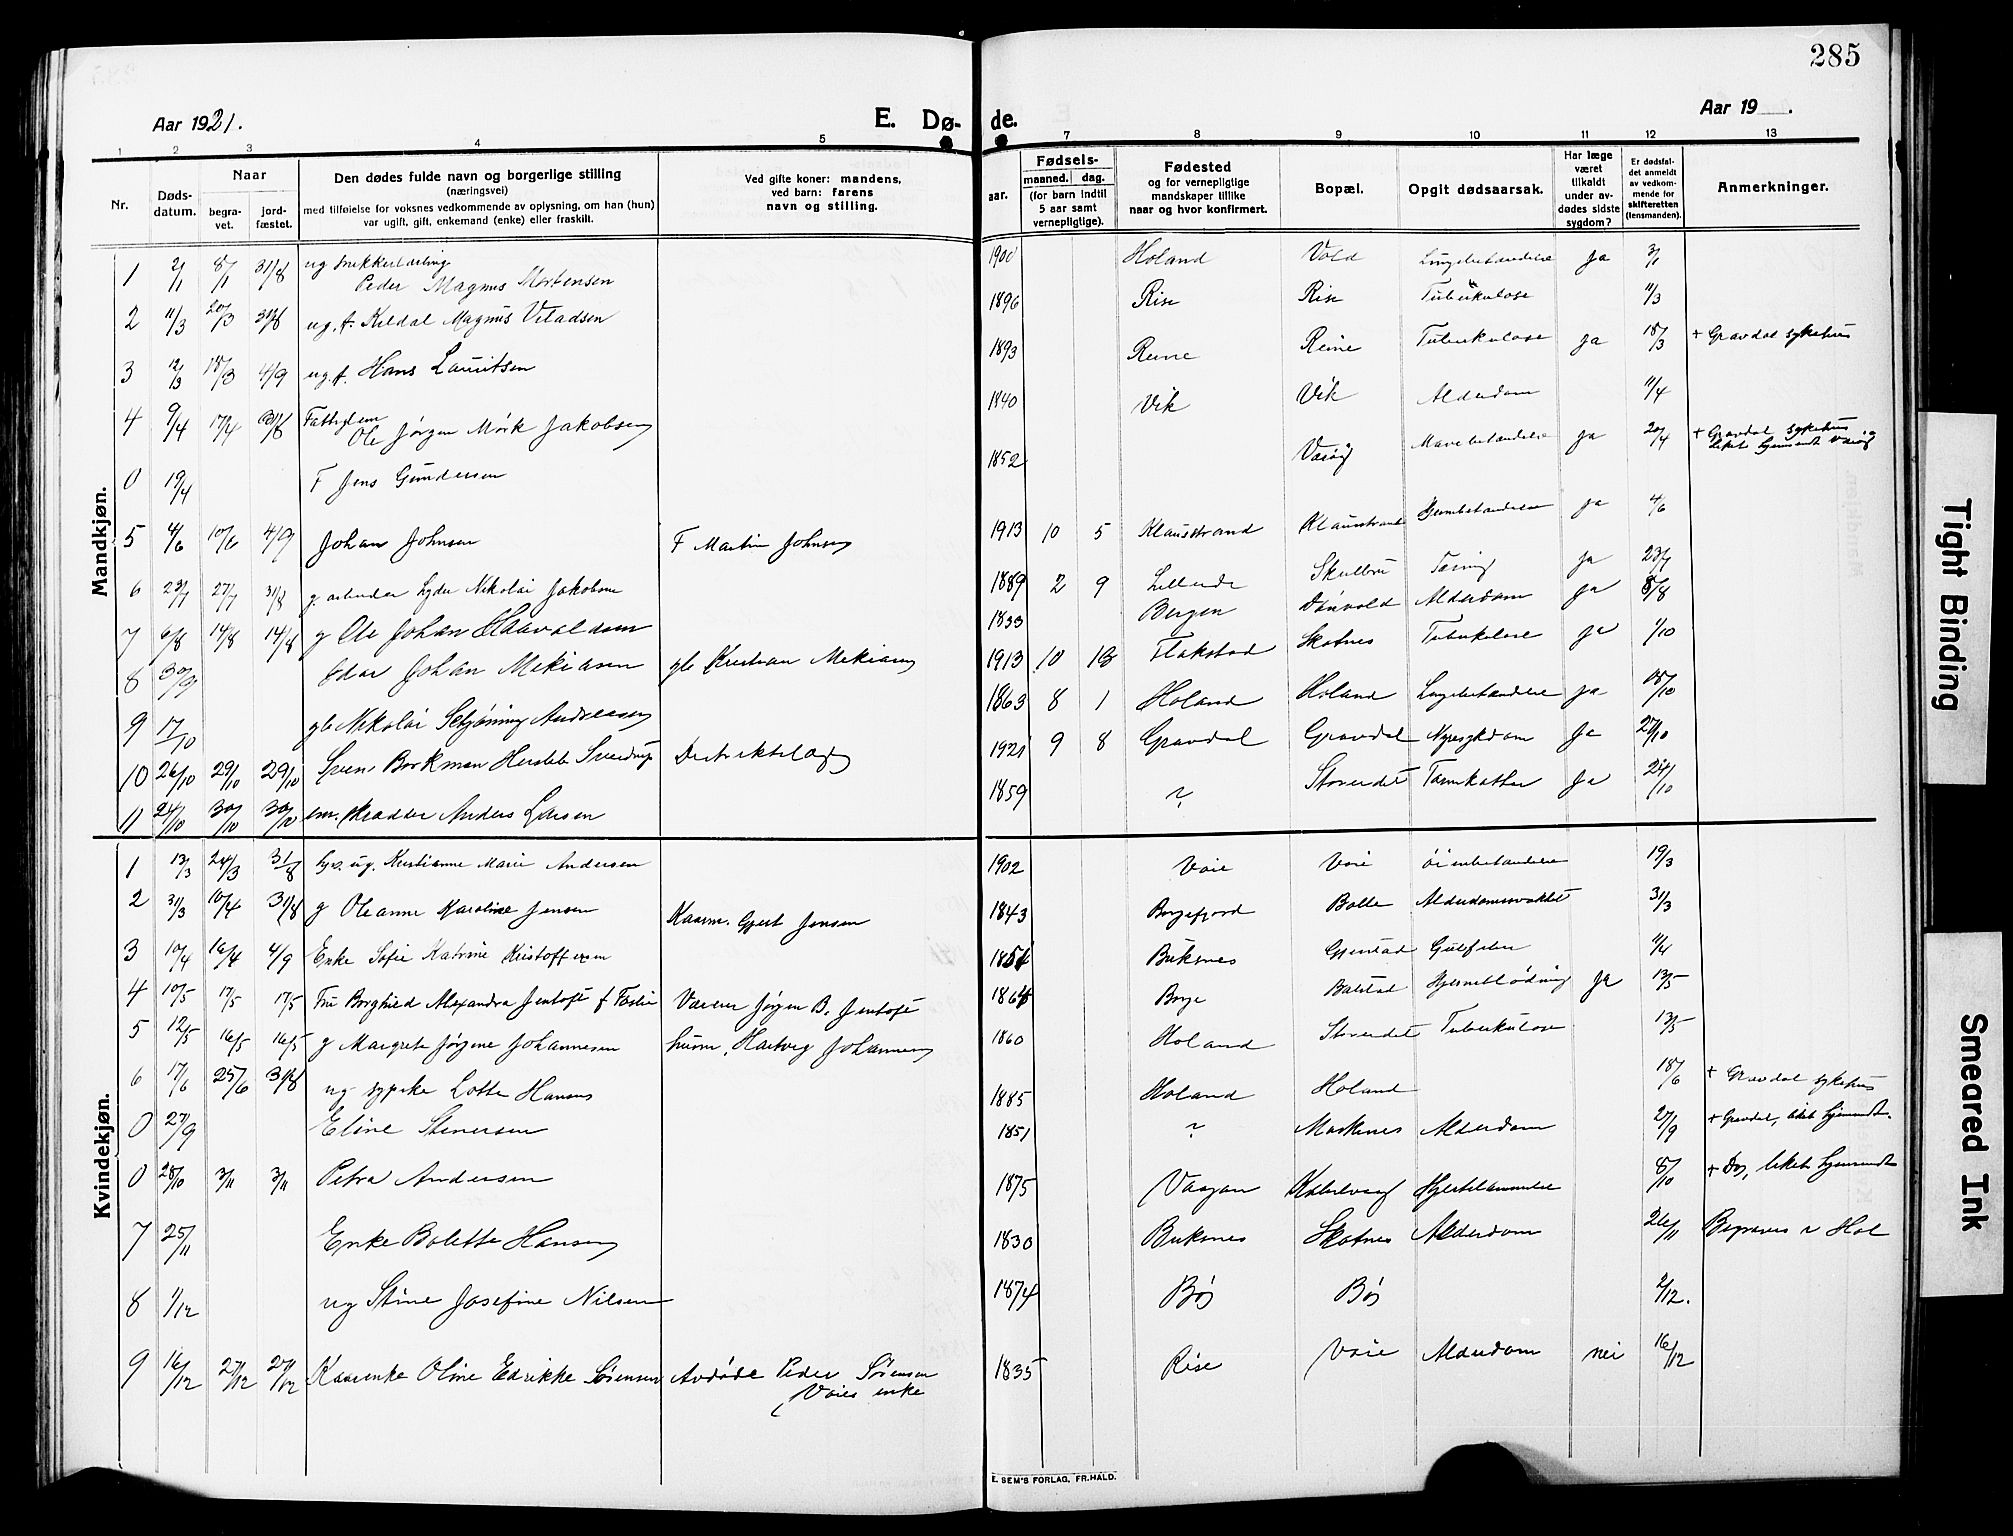 285
Aar 1921.
E. Dø- de.
Aar 19 .
1 2 3 4 5 7 8 9 10 11 12 13
Nr.
Døds-datum.
Naar
begra-vet.
jord-fæstet.
Den dødes fulde navn og borgerlige stilling
(næringsvei)
med tilføielse for voksnes vedkommende av oplysning, om han (hun)
var ugift, gift, enkemand (enke) eller fraskilt.
Ved gifte koner: mandens,
ved barn: farens
navn og stilling.
aar.
Fødsels-
maaned. dag.
(for barn indtil
5 aar samt
vernepligtige).
Fødested
og for vernepligtige
mandskaper tillike
naar og hvor konfirmert.
Bopæl.
Opgit dødsaarsak.
Har læge
været
tilkaldt
under av-
dødes sidste
sygdom?
Er dødsfal-
det anmeldt
av vedkom-
mende for
skifteretten
(lensmanden).
Anmerkninger.
Mandkjøn.
1 2/1 8/1 31/8 ug Peder Magnus Mortensen 1900 Holand Vold ja 3/1
2 11/3 20/3 31/8 ug. f. Kildal Magnus 1896 Rise Rise Tuberkulose 11/3
3 12/3 18/3 4/9 ug. f. Hans Lauritsen 1893 Reine Reine Tuberkulose ja 18/3 + Gravdal sykehus
4 9/4 17/4 31/8 Ole Jørgen Mørk Jakobsen 1840 Vik Vik Alderdom 11/4
0 19/4 F Jens Gundersen 1852 Værøy ja 20/4 + Gravdal sykehus
5 4/6 10/6 4/9 Johan Johnsen F Martin Johnsen 1913 10 5 Klausstrand Klausstrand ja 4/6
6 23/7 27/7 31/8 g. arbeider Nikolai Jakobsen 1889 2 9 Tæring ja 23/7
7 6/8 14/8 14/8 g Ole Johan 1833 Bergen Alderdom ja 8/8
8 30/9 Johan Mekiasen gb Kristian Mekiasen 1913 10 13 Flakstad Skotnes Tuberkulose ja 1/10
9 17/10 gb Nikolai Andreasen 1863 8 1 Holand Holand ja 18/10
10 26/10 29/10 29/10 Sven Borkman Hersleb Sverdrup Distriktslæge 1921 9 8 Gravdal Gravdal Nyresykdom Ja 27/10
11 24/10 30/10 30/10 em. skrædder Anders Larsen 1859 ? Storeidet Ja 24/10
Kvindekjøn.
1 13/3 24/3 31/8 ug. Kristianne Marie Andersen 1902 Voie Voie 19/3
2 31/3 10/4 31/8 g Oleanne Karoline Jensen Kaarm. Gjert Jensen 1843 Borgefjord Balle 31/3
3 10/4 16/4 4/9 Enke Sofie Katrine Kristoffersen 1854 Buksnes 11/4
4 10/5 17/5 17/5 Fru Borghild Alexandra Jentoft f Væreier Jørgen B. Jentoft 1864 Borge Balstad Hjerneblødning ja 13/5
5 12/5 16/5 16/5 g Margrete Jørgine Johannesen husm. Hartvig Johannesen 1860 Holand Storeidet Tuberkulose 13/5
6 17/6 25/6 31/8 ug sypike Lotte Hansen 1885 Holand Holand 18/6 + Gravdal sykehus
0 27/9 Eline Stenersen 1851 ? Moskenes Alderdom 27/9 + Gravdal, liket hjemsendt.
0 28/10 3/11 3/11 Petra Andersen 1875 Vaagan 8/10 + Do, liket hjemsendt
7 25/11 Enke Bolette Hansen 1830 Buksnes Skotnes Alderdom 26/11 Begraves v Hol
8 1/12 ug Stine Josefine Nilsen 1874 Bø Bø 2/12.
9 16/12 27/12 27/12 Kaarenke Oline Edrikke Sørensen Avdøde Peder Sørensen 1835 Rise Voie Alderdom nei 16/12
Voies enke
E. SEM'S FORLAG, FR.HALD.
Tight Binding
Smeared Ink